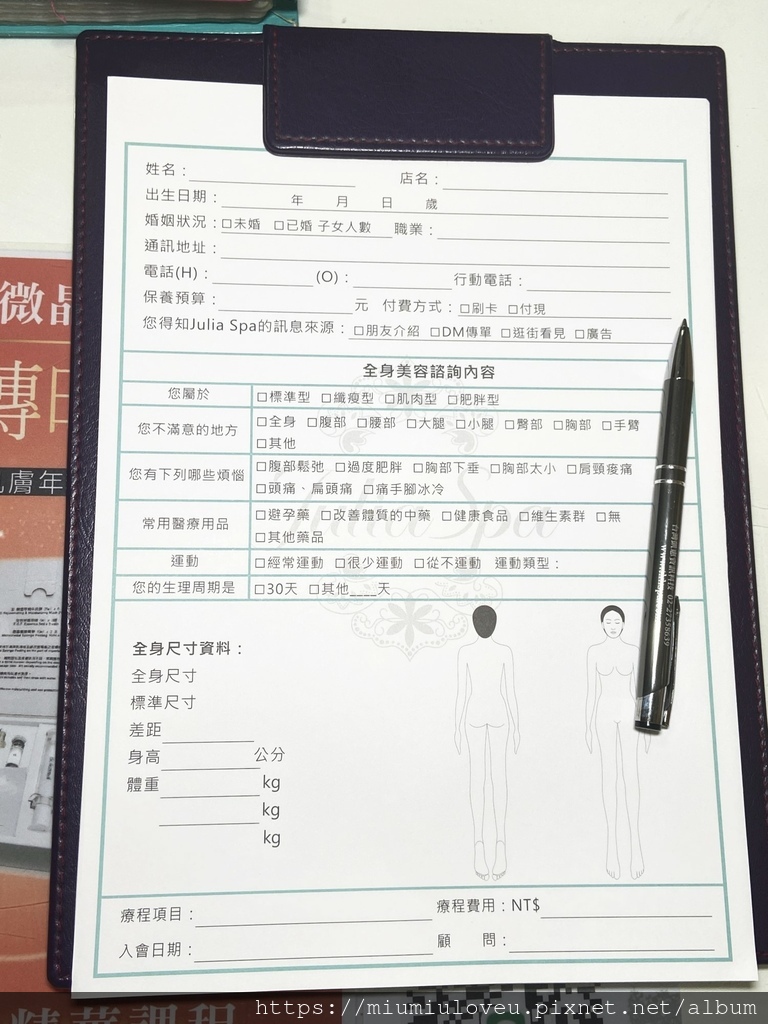 姓名： 店名：
出生日期： 年 月 日 歲
婚姻狀況：□未婚 □已婚 子女人數 職業：
通訊地址：
電話(H)： (O)： 行動電話：
保養預算： 元 付費方式：□刷卡 □付現
您得知Julia Spa的訊息來源：□朋友介紹 □DM傳單 □逛街看見 □廣告
全身美容諮詢內容
您屬於 □標準型 □纖瘦型 □肌肉型 □肥胖型
您不滿意的地方 □全身 □腹部 □腰部 □大腿 □小腿 □臀部 □胸部 □手臂
□其他
您有下列哪些煩惱 □腹部鬆弛 □過度肥胖 □胸部下垂 □胸部太小 □肩頸痠痛
□頭痛、扁頭痛 □痛手腳冰冷
常用醫療用品 □避孕藥 □改善體質的中藥 □健康食品 □維生素群 □無
□其他藥品
運動 □經常運動 □很少運動 □從不運動 運動類型：
您的生理周期是 □30天 □其他____天
Julia Spa
全身尺寸資料：
全身尺寸
標準尺寸
差距
身高 公分
體重 kg
kg
kg
療程項目： 療程費用：NT$
入會日期： 顧 問：
微晶
專
膚年
精華課程
02-27358639
https://miumiuloveu.pixnet.net/album